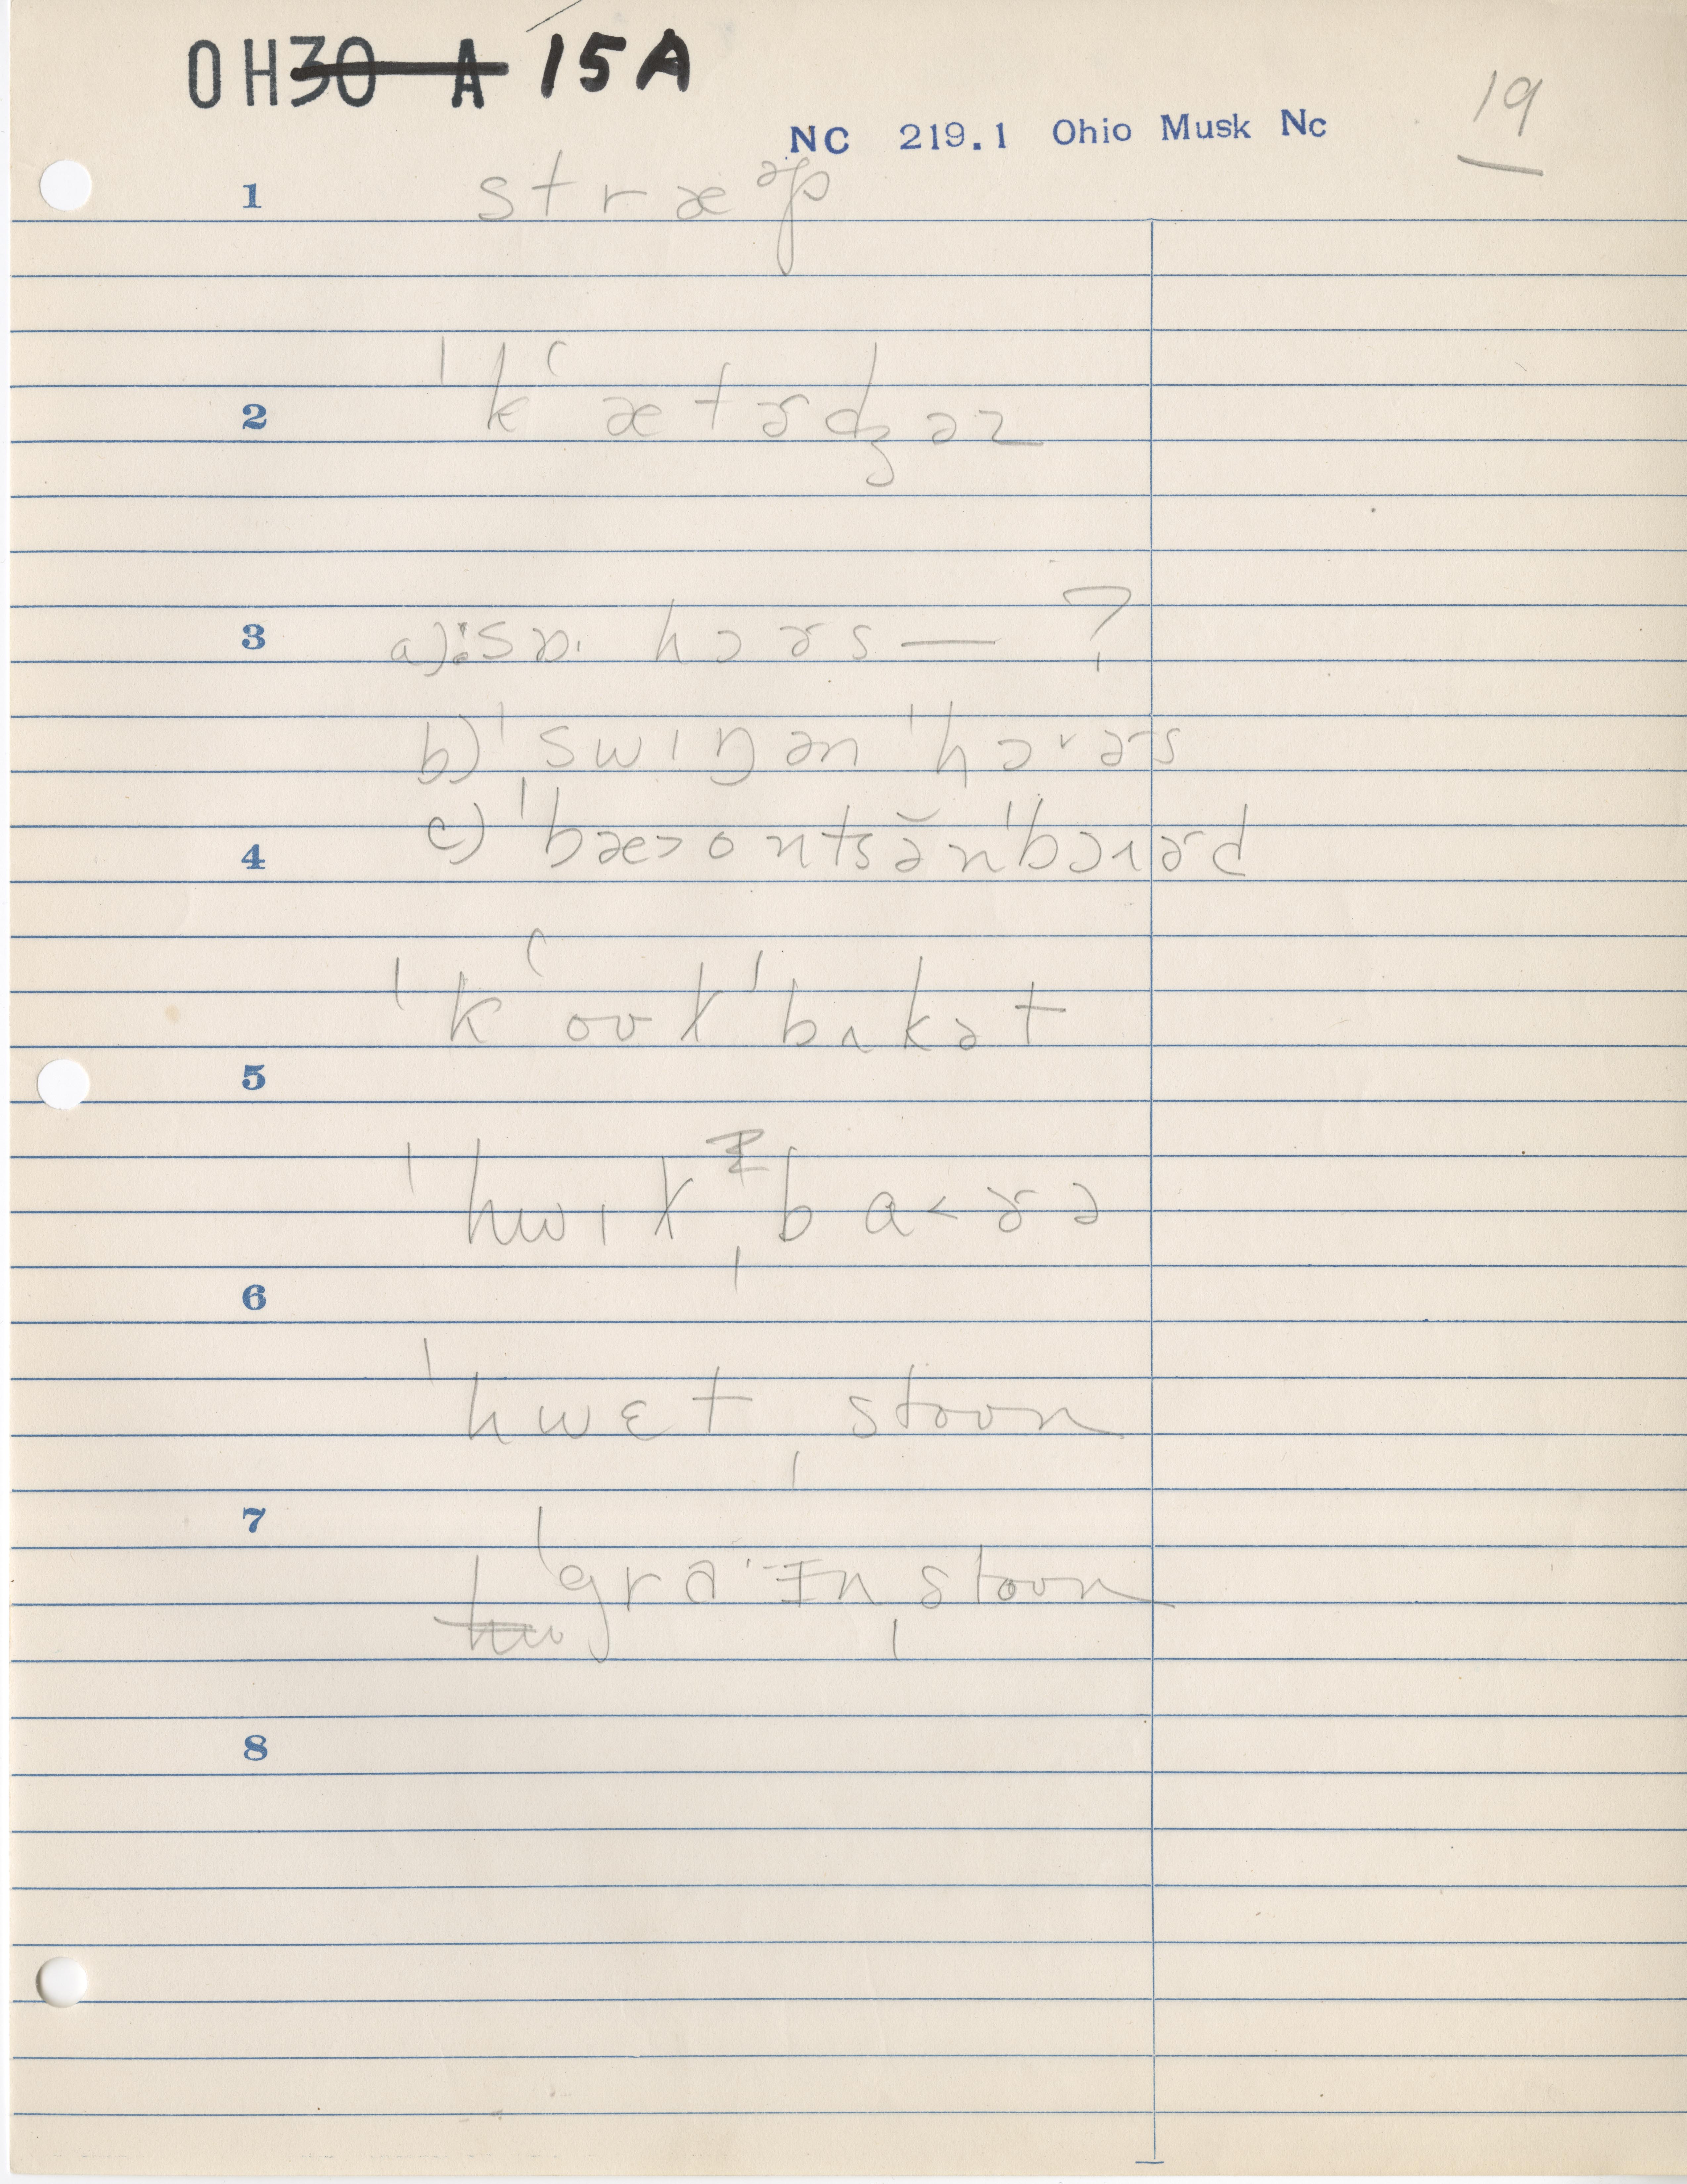 OH30 A 15A
NC 219.1 Ohio Musk Nc
19
1 stræᵊp
2 ˈkʻætɚdʒəz
3 hɔɚs — ?
b) ˈswɪŋən ˈhɔ˅ɚs
4 c) ˈbæ>ontsə̆nˈbɔʌɚd
ˈkʻoʊɫˈbʌkət
5
ˈhwɪɫˌba<ɚə
6
ˈhwɛtˌstoʊn
7
ˈgraˑɪnˌstoʊn
8